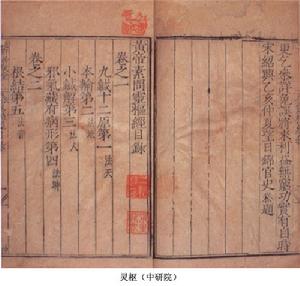 更乞參詳免誤將來利益無窮功實有自時
宋紹興乙亥仲夏望日錦官史崧題
黃帝素問靈樞經目錄
卷之一
九鍼十二原第一 法天
本輸第二 法地
小鍼解第三 法人
邪氣藏府病形第四 法時
卷之二
根結第五 法音
灵枢（中研院）